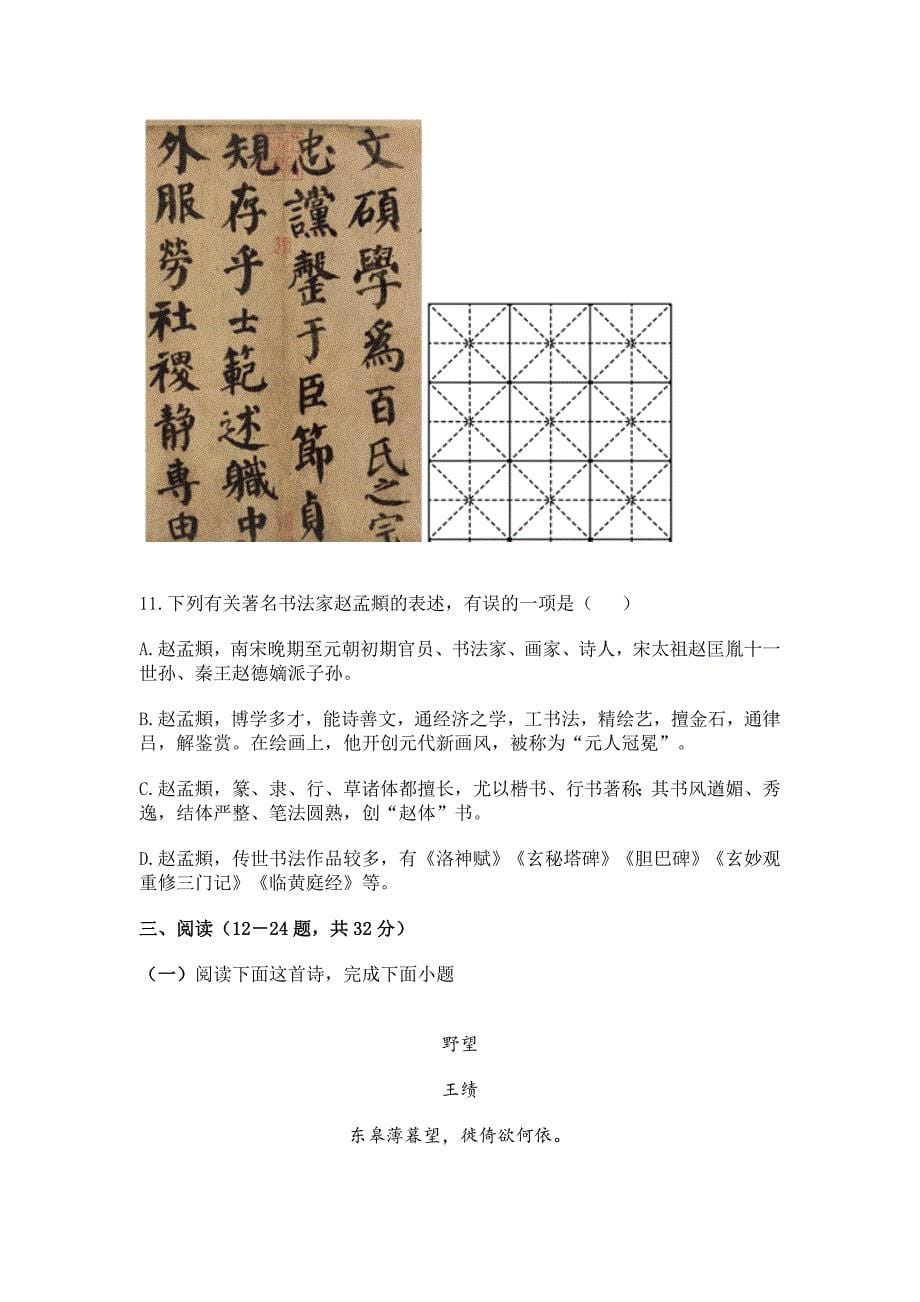 文硕學為百氏之宗
忠讜罄于臣節貞
規存乎士範述職中
外服勞社稷静專由
11.下列有关著名书法家赵孟頫的表述，有误的一项是（   ）
A.赵孟頫，南宋晚期至元朝初期官员、书法家、画家、诗人，宋太祖赵匡胤十一
世孙、秦王赵德嫡派子孙。
B.赵孟頫，博学多才，能诗善文，通经济之学，工书法，精绘艺，擅金石，通律
吕，解鉴赏。在绘画上，他开创元代新画风，被称为“元人冠冕”。
C.赵孟頫，篆、隶、行、草诸体都擅长，尤以楷书、行书著称；其书风遒媚、秀
逸，结体严整、笔法圆熟，创“赵体”书。
D.赵孟頫，传世书法作品较多，有《洛神赋》《玄秘塔碑》《胆巴碑》《玄妙观
重修三门记》《临黄庭经》等。
三、阅读（12－24题，共32分）
（一）阅读下面这首诗，完成下面小题
野望
王绩
东皋薄暮望，徙倚欲何依。